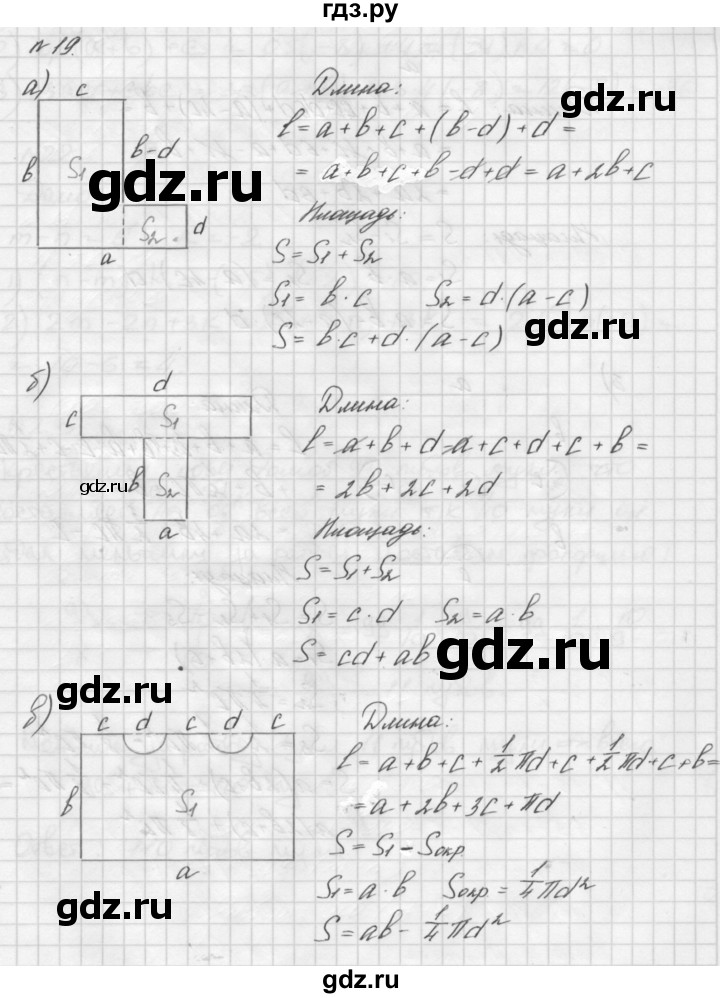 гдз.ру
№ 19.
а) c
b S1 b-d
S2 d
a
Длина:
l = a + b + c + (b-d) + d =
= a + b + c + b - d + d = a + 2b + c
Площадь:
S = S1 + S2
S1 = b · c S2 = d · (a - c)
S = b · c + d · (a - c)
gdz.ru
gdz.ru
gdz.ru
б) d
c S1
b S2
a
gdz.ru
Длина:
l = a + b + d - a + c + d + c + b =
= 2b + 2c + 2d
Площадь:
S = S1 + S2
S1 = c · d S2 = a · b
S = cd + ab
gdz.ru
gdz.ru
в) c d c d c
b S1
a
Длина:
l = a + b + c + 1/2 πd + c + 1/2 πd + c + b =
= a + 2b + 3c + πd
S = S1 - Sокр
S1 = a · b Sокр = 1/4 πd²
S = ab - 1/4 πd²
gdz.ru
gdz.ru
гдз.ру